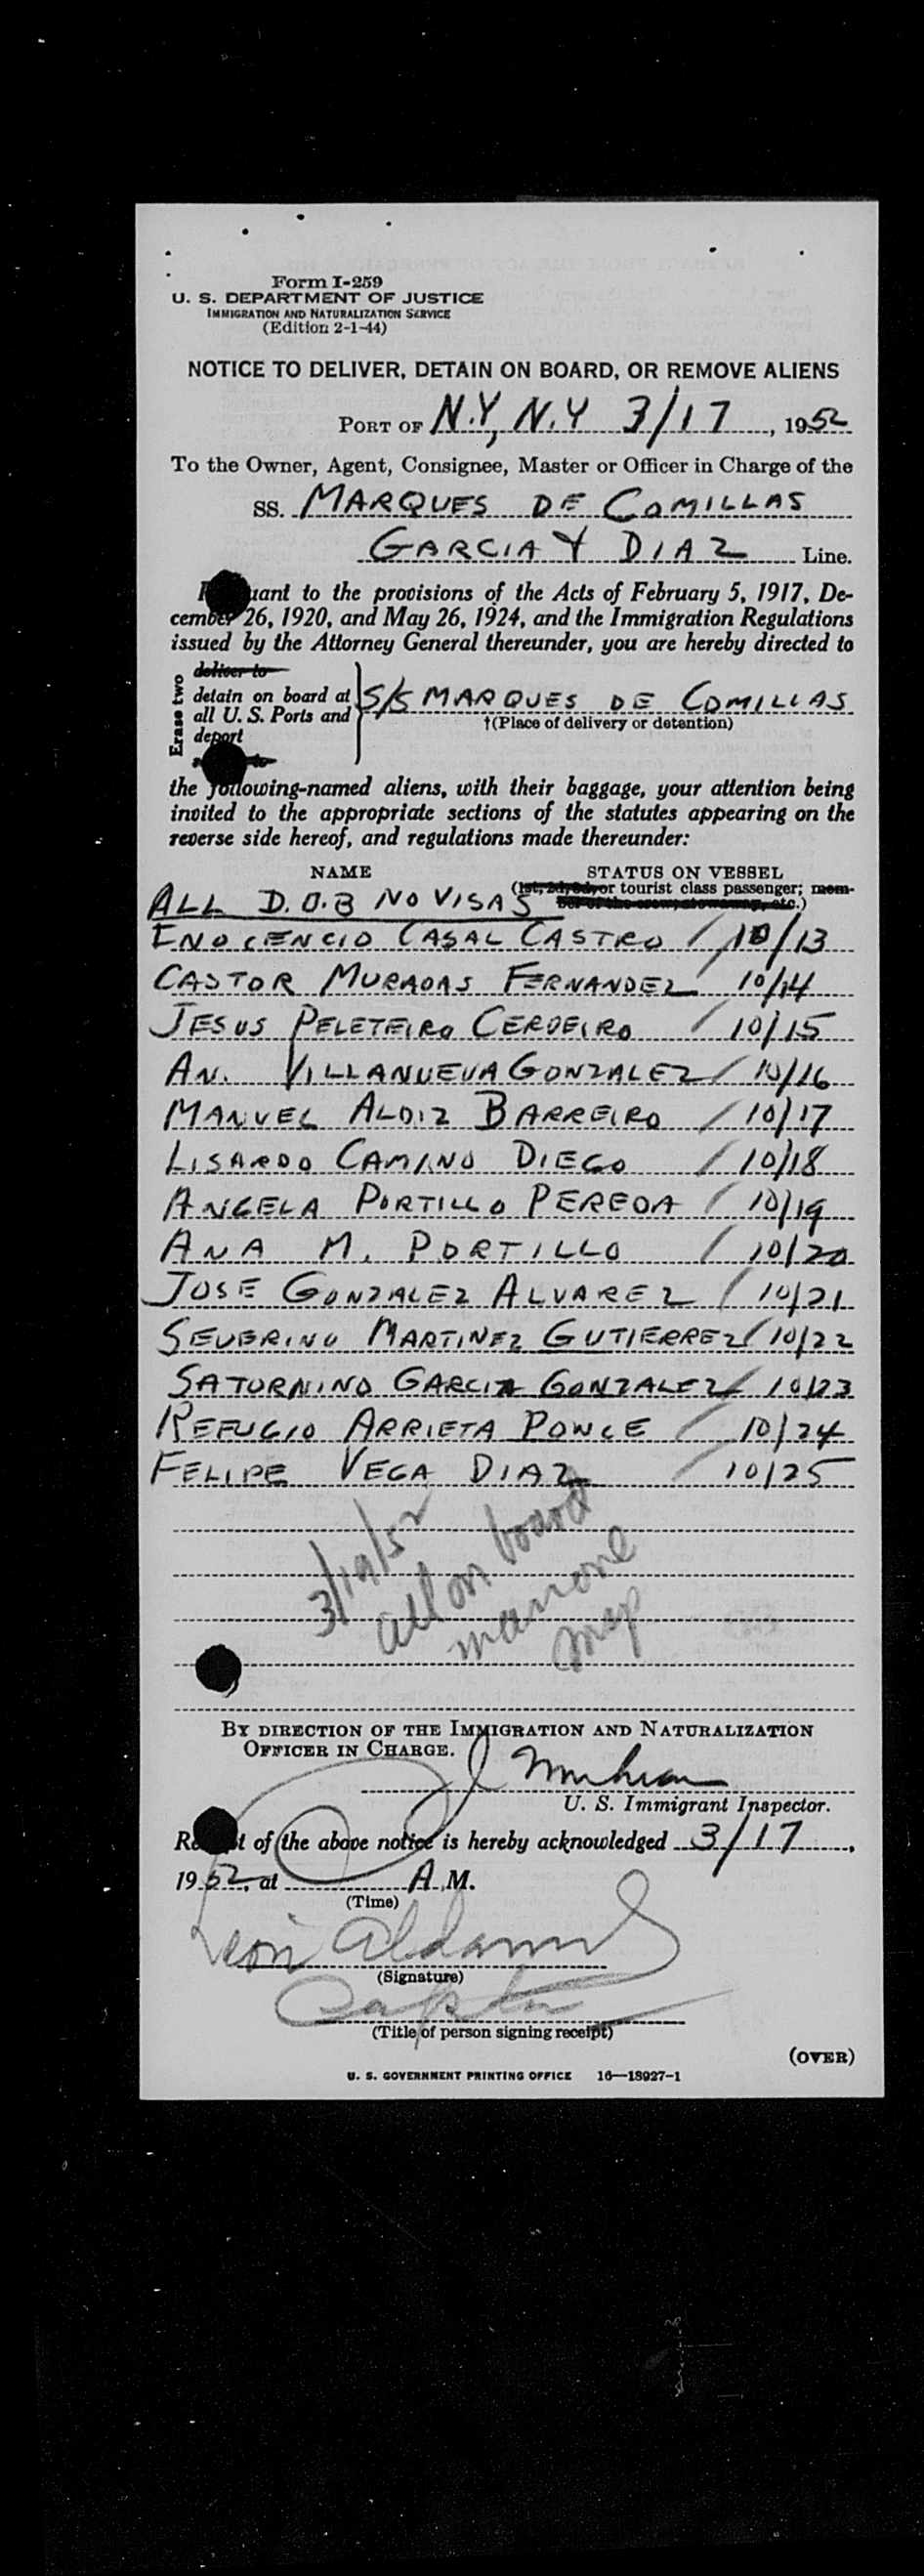 Form I-259
U. S. DEPARTMENT OF JUSTICE
IMMIGRATION AND NATURALIZATION SERVICE
(Edition 2-1-44)
NOTICE TO DELIVER, DETAIN ON BOARD, OR REMOVE ALIENS
PORT OF N.Y, N.Y 3/17, 1952
To the Owner, Agent, Consignee, Master or Officer in Charge of the
SS. MARQUES DE COMILLAS
GARCIA Y DIAZ Line.
uant to the provisions of the Acts of February 5, 1917, De-
cember 26, 1920, and May 26, 1924, and the Immigration Regulations
issued by the Attorney General thereunder, you are hereby directed to
Erase two
deliver to
detain on board at
all U. S. Ports and
deport
S/S MARQUES DE COMILLAS
†(Place of delivery or detention)
the following-named aliens, with their baggage, your attention being
invited to the appropriate sections of the statutes appearing on the
reverse side hereof, and regulations made thereunder:
NAME STATUS ON VESSEL
(1st, 2d, 3d, or tourist class passenger; mem-
ber of the crew, stowaway, etc.)
ALL D.O.B NO VISAS
INOCENCIO CASAL CASTRO / 10/13
CASTOR MURADAS FERNANDEZ 10/14
JESUS PELETEIRO CERDEIRO / 10/15
AN. VILLANUEVA GONZALEZ / 10/16
MANUEL ALDIZ BARREIRO / 10/17
LISARDO CAMINO DIEGO / 10/18
ANGELA PORTILLO PEREDA / 10/19
ANA M. PORTILLO / 10/20
JOSE GONZALEZ ALVAREZ / 10/21
SEVERINO MARTINEZ GUTIERREZ / 10/22
SATORNINO GARCIA GONZALEZ / 10/23
REFUGIO ARRIETA PONCE / 10/24
FELIPE VEGA DIAZ / 10/25
3/19/52
all on board
BY DIRECTION OF THE IMMIGRATION AND NATURALIZATION
OFFICER IN CHARGE.
U. S. Immigrant Inspector.
Receipt of the above notice is hereby acknowledged 3/17,
1952, at A.M.
(Time)
(Signature)
(Title of person signing receipt)
(OVER)
U. S. GOVERNMENT PRINTING OFFICE 16—18927-1